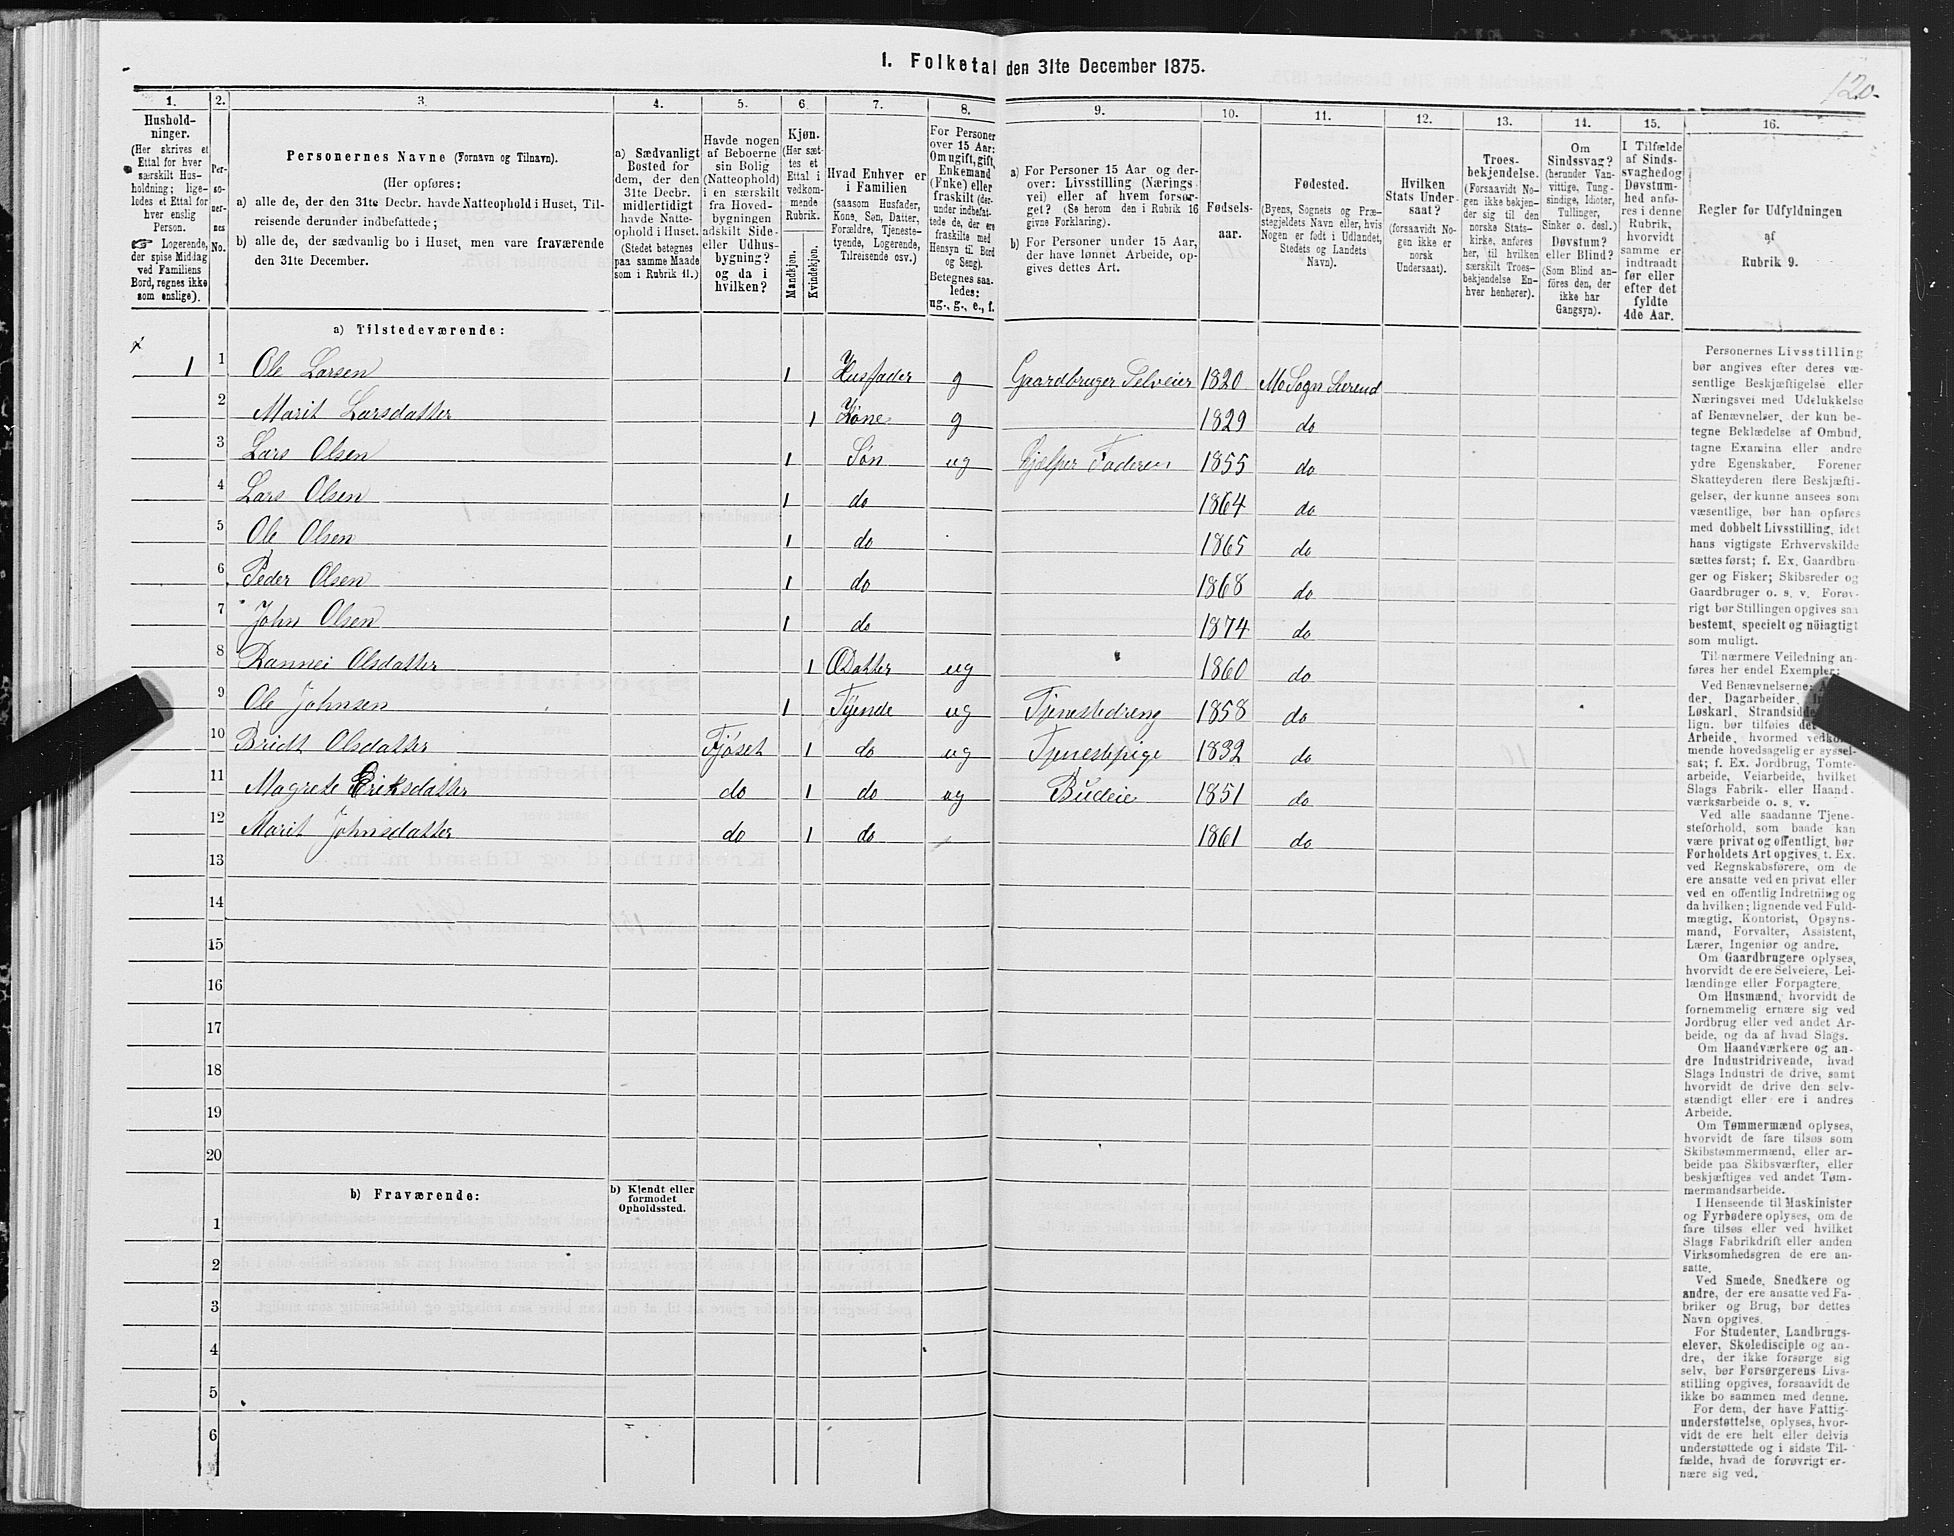 I. Folketal den 31te December 1875.
120.
1. 2. 3. 4. 5. 6. 7. 8. 9. 10. 11. 12. 13. 14. 15. 16.
Hushold-
ninger.
(Her skrives et
Ettal for hver
særskilt Hus-
holdning; lige-
ledes et Ettal for
hver enslig
Person.
☞ Logerende,
der spise Middag
ved Familiens
Bord, regnes ikke
som enslige).
Per-
so-
ner-
nes
No.
Personernes Navne (Fornavn og Tilnavn).
(Her opføres:
a) alle de, der den 31te Decbr. havde Natteophold i Huset, Til-
reisende derunder indbefattede;
b) alle de, der sædvanlig bo i Huset, men vare fraværende
den 31te December.
a) Sædvanligt
Bosted for
dem, der den
31te Decbr.
midlertidigt
havde Natte-
ophold i Huset.
(Stedet betegnes
paa samme Maade
som i Rubrik 11.)
Havde nogen
af Beboerne
sin Bolig
(Natteophold)
i en særskilt
fra Hoved-
bygningen
adskilt Side-
eller Udhus-
bygning?
og da i
hvilken?
Kjøn.
(Her sæt-
tes et
Ettal i
vedkom-
mende
Rubrik.
Mandkjøn.
Kvindekjøn.
Hvad Enhver er
i Familien
(saasom Husfader,
Kone, Søn, Datter,
Forældre, Tjeneste-
tyende, Logerende,
Tilreisende osv.)
For Personer
over 15 Aar:
Om ugift, gift,
Enkemand
(Enke) eller
fraskilt (der-
under indbefat-
tede de, der ere
fraskilte med
Hensyn til Bord
og Seng).
Betegnes saa-
ledes:
ug., g., e., f.
a) For Personer 15 Aar og der-
over: Livsstilling (Nærings-
vei) eller af hvem forsør-
get? (Se herom den i Rubrik 16
givne Forklaring).
b) For Personer under 15 Aar,
der have lønnet Arbeide, op-
gives dettes Art.
Fødsels-
aar.
Fødested.
(Byens, Sognets og Præ-
stegjeldets Navn eller, hvis
Nogen er født i Udlandet,
Stedets og Landets
Navn).
Hvilken
Stats Under-
saat?
(forsaavidt No-
gen ikke er
norsk
Undersaat).
Troes-
bekjendelse.
(Forsaavidt No-
gen ikke bekjen-
der sig til den
norske Stats-
kirke, anføres
her, til hvilken
særskilt Troes-
bekjendelse En-
hver henhører).
Om
Sindssvag?
(herunder Van-
vittige, Tung-
sindige, Idioter,
Tullinger,
Sinker o. desl.)
Døvstum?
eller Blind?
(Som Blind an-
føres den, der
ikke har
Gangsyn).
I Tilfælde
af Sinds-
svaghed og
Døvstum-
hed anfø-
res i denne
Rubrik,
hvorvidt
samme er
indtraadt
før eller
efter det
fyldte
4de Aar.
Regler for Udfyldningen
af
Rubrik 9.
a) Tilstedeværende:
1 1 Ole Larsen 1 Husfader g Gaardbruger Selveier 1820 Mo Sogn Surend
2 Marit Larsdatter 1 Kone g 1829 do
3 Lars Olsen 1 Søn ug Hjelper Faderen 1855 do
4 Lars Olsen 1 do 1864 do
5 Ole Olsen 1 do 1865 do
6 Peder Olsen 1 do 1868 do
7 John Olsen 1 do 1874 do
8 Rannei Olsdatter 1 Datter ug 1860 do
9 Ole Johnsen 1 Tyende ug Tjenestedreng 1858 do
10 Bridt Olsdatter Fjøset 1 do ug Tjenestepige 1832 do
11 Magrete Eriksdatter do 1 do ug Budeie 1851 do
12 Marit Johnsdatter do 1 do 1861 do
13
14
15
16
17
18
19
20
b) Fraværende:
b) Kjendt eller
formodet
Opholdssted.
1
2
3
4
5
6
Personernes Livsstilling
bør angives efter deres væ-
sentlige Beskjæftigelse eller
Næringsvei med Udelukkelse
af Benævnelser, der kun be-
tegne Beklædelse af Ombud,
tagne Examina eller andre
ydre Egenskaber. Forener
Skatteyderen flere Beskjæfti-
gelser, der kunne ansees som
væsentlige, bør han opføres
med dobbelt Livsstilling, idet
hans vigtigste Erhvervskilde
sættes først; f. Ex. Gaardbru-
ger og Fisker; Skibsreder og
Gaardbruger o. s. v. Forøv-
rigt bør Stillingen opgives saa
bestemt, specielt og nöiagtigt
som muligt.
Til nærmere Veiledning an-
føres her endel Exempler:
Ved Benævnelserne:
der, Dagarbeider,
Løskarl, Strandsidde
lign. bør tilføies det
Arbeide, hvormed vedkom-
mende hovedsagelig er syssel-
sat; f. Ex. Jordbrug, Tomte-
arbeide, Veiarbeide, hvilket
Slags Fabrik- eller Haand-
værksarbeide o. s. v.
Ved alle saadanne Tjene-
steforhold, som baade kan
være privat og offentligt, bør
Forholdets Art opgives, t. Ex.
ved Regnskabsførere, om de
ere ansatte ved en privat eller
ved en offentlig Indretning og
da hvilken; lignende ved Fuld-
mægtig, Kontorist, Opsyns-
mand, Forvalter, Assistent,
Lærer, Ingeniør og andre.
Om Gaardbrugere oplyses,
hvorvidt de ere Selveiere, Lei-
lændinge eller Forpagtere.
Om Husmænd, hvorvidt de
fornemmelig ernære sig ved
Jordbrug eller ved andet Ar-
beide, og da af hvad Slags.
Om Haandværkere og an-
dre Industridrivende, hvad
Slags Industri de drive, samt
hvorvidt de drive den selv-
stændigt eller ere i andres
Arbeide.
Om Tømmermænd oplyses,
hvorvidt de fare tilsøs som
Skibstømmermænd, eller ar-
beide paa Skibsværfter, eller
beskjæftiges ved andet Tøm-
mermandsarbeide.
I Henseende til Maskinister
og Fyrbødere oplyses, om de
fare tilsøs eller ved hvilket
Slags Fabrikdrift eller anden
Virksomhedsgren de ere an-
satte.
Ved Smede, Snedkere og
andre, der ere ansatte ved Fa-
briker og Brug, bør dettes
Navn opgives.
For Studenter, Landbrugs-
elever, Skoledisciple og an-
dre, der ikke forsørge sig
selv, bør Forsørgerens Livs-
stilling opgives, forsaavidt de
ikke bo sammen med denne.
For dem, der have Fattig-
understøttelse, oplyses, hvor-
vidt de ere helt eller delvis
understøttede og i sidste Til-
fælde, hvad de forøvrigt er-
nære sig ved.